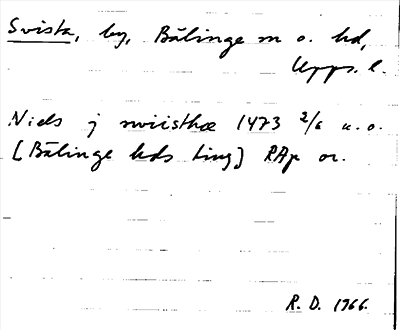 Svista, by, Bälinge sn o. hd,
Upps. l.
Niels j swiisthæ 1473 2/6 u.o.
[Bälinge hds ting] RAp or.
R. D. 1966.